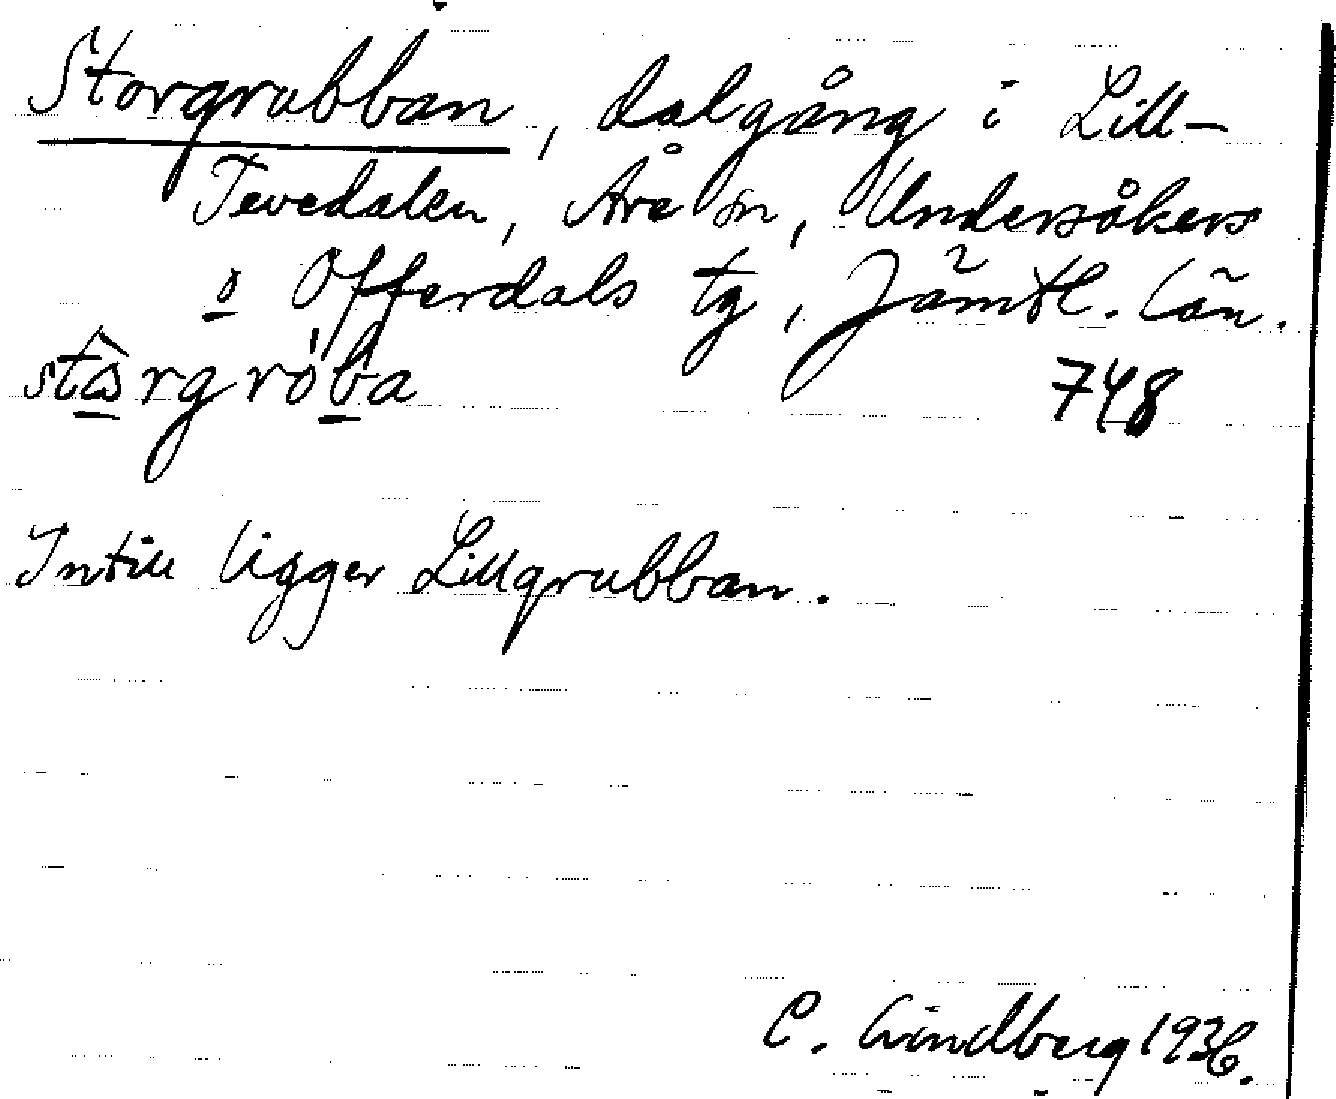 Storgrubban, dalgång i Lill-
Tevedalen, Åre sn, Undersåkers
o Offerdals tg, Jämtl. län.
748
Intill ligger Lillgrubban.
C. Lindberg 1936.